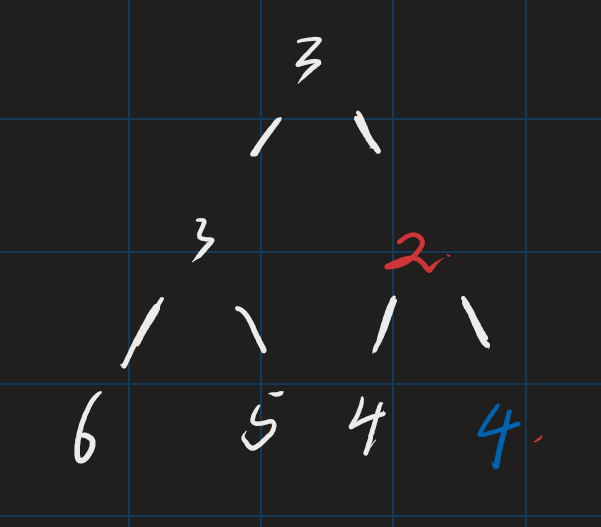 3
3 2
6 5 4 4